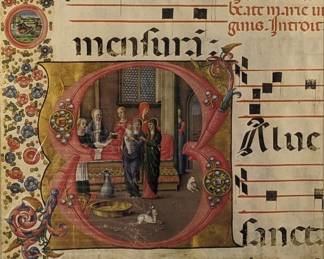 beate marie uir
ginis. Introit
mensura:
Alue
sancta